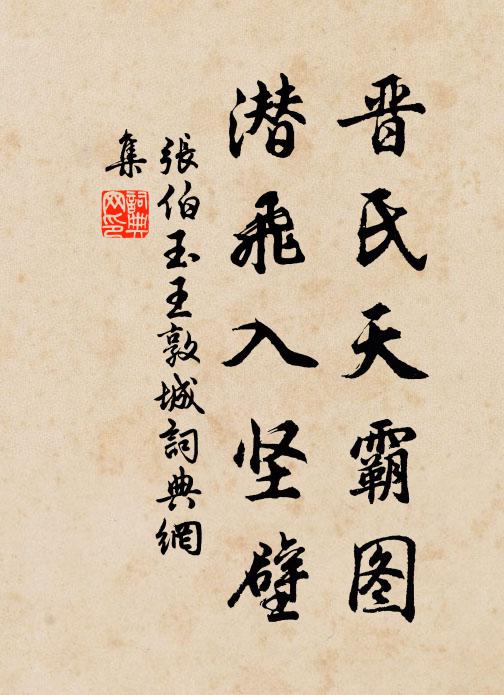 晋氏天霸图
潜飛入坚壁
張伯玉王敦城詞典網
集
詞典
网印